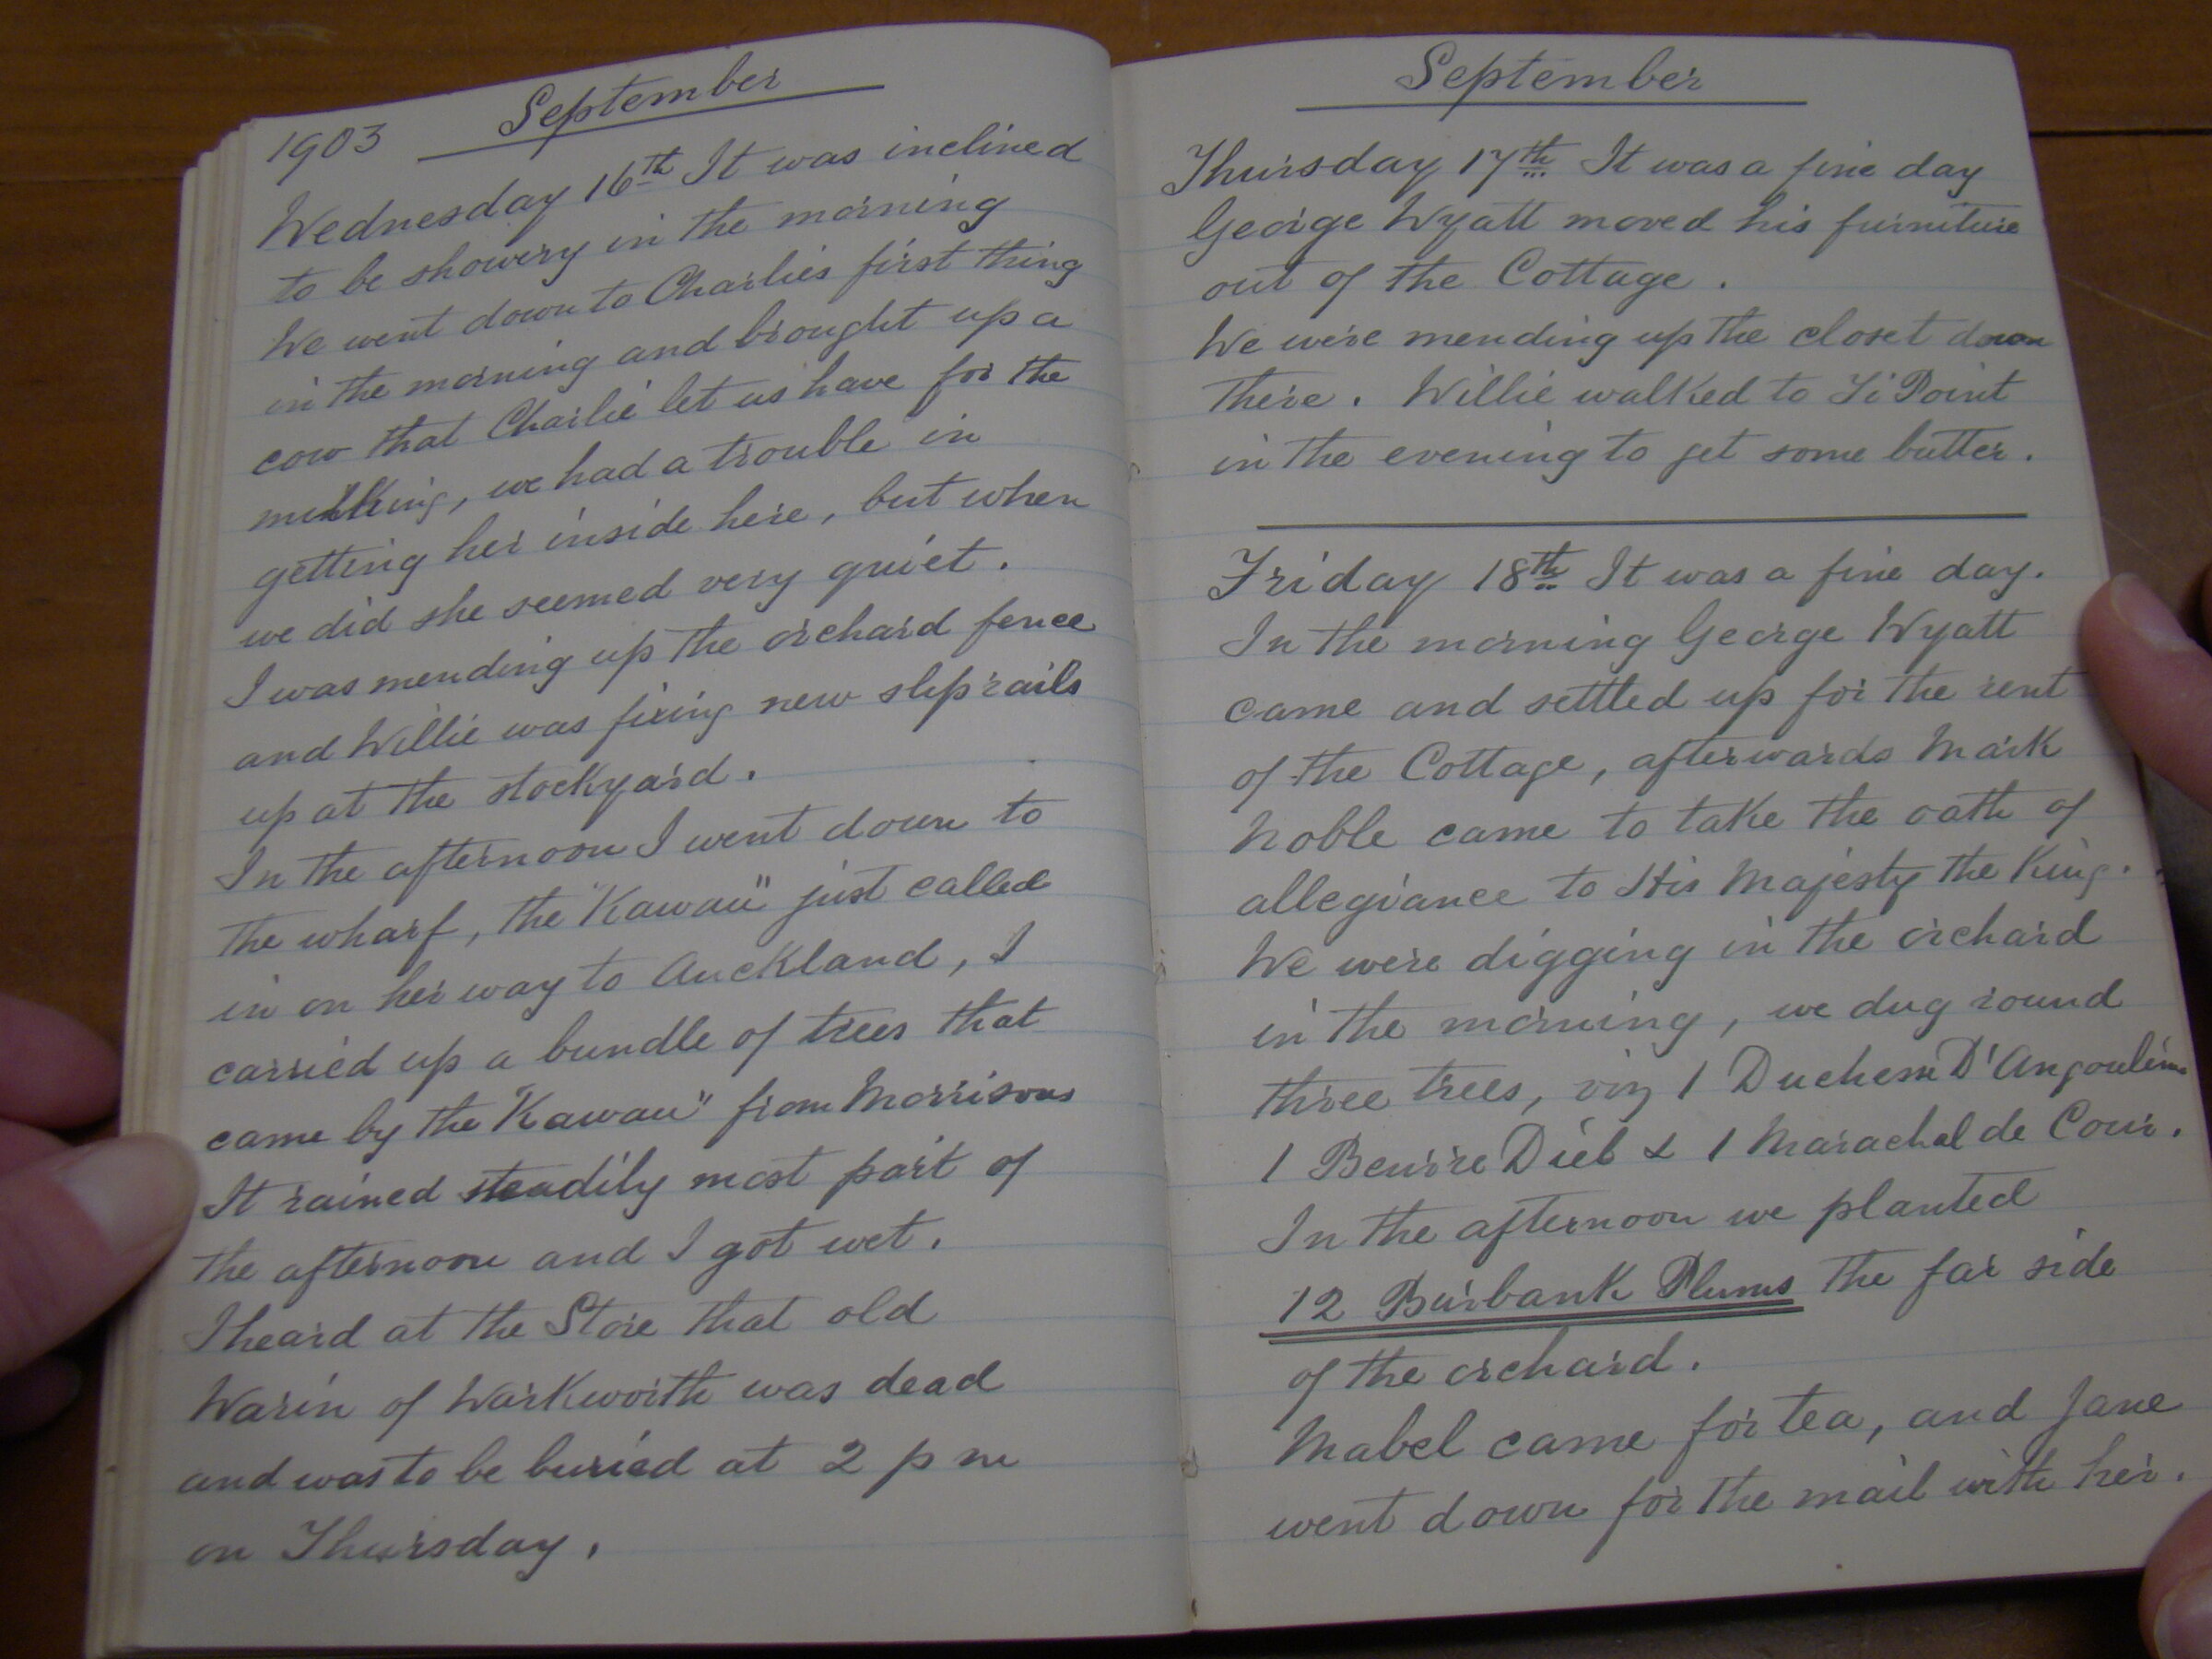 1903 September
Wednesday 16th It was inclined
to be showery in the morning
We went down to Charlies first thing
in the morning and brought up a
cow that Charlie let us have for the
milking, we had a trouble in
getting her inside here, but when
we did she seemed very quiet.
I was mending up the orchard fence
and Willie was fixing new sliprails
up at the stockyard.
In the afternoon I went down to
the wharf, the "Kawau" just called
in on her way to Auckland, I
carried up a bundle of trees that
came by the "Kawau" from Morrisons
It rained steadily most part of
the afternoon and I got wet.
I heard at the Store that old
Warin of Warkworth was dead
and was to be buried at 2 p m
on Thursday.
September
Thursday 17th It was a fine day
George Wyatt moved his furniture
out of the Cottage.
We were mending up the closet down
there. Willie walked to Ti Point
in the evening to get some butter.
Friday 18th It was a fine day.
In the morning George Wyatt
came and settled up for the rent
of the Cottage, afterwards Mark
Noble came to take the oath of
allegiance to His Majesty the King.
We were digging in the orchard
in the morning, we dug round
three trees, viz 1 Duchess D'Angoulême
1 Beurre Diel & 1 Marachal de Cour.
In the afternoon we planted
12 Burbank Plums the far side
of the orchard.
Mabel came for tea, and Jane
went down for the mail with her.